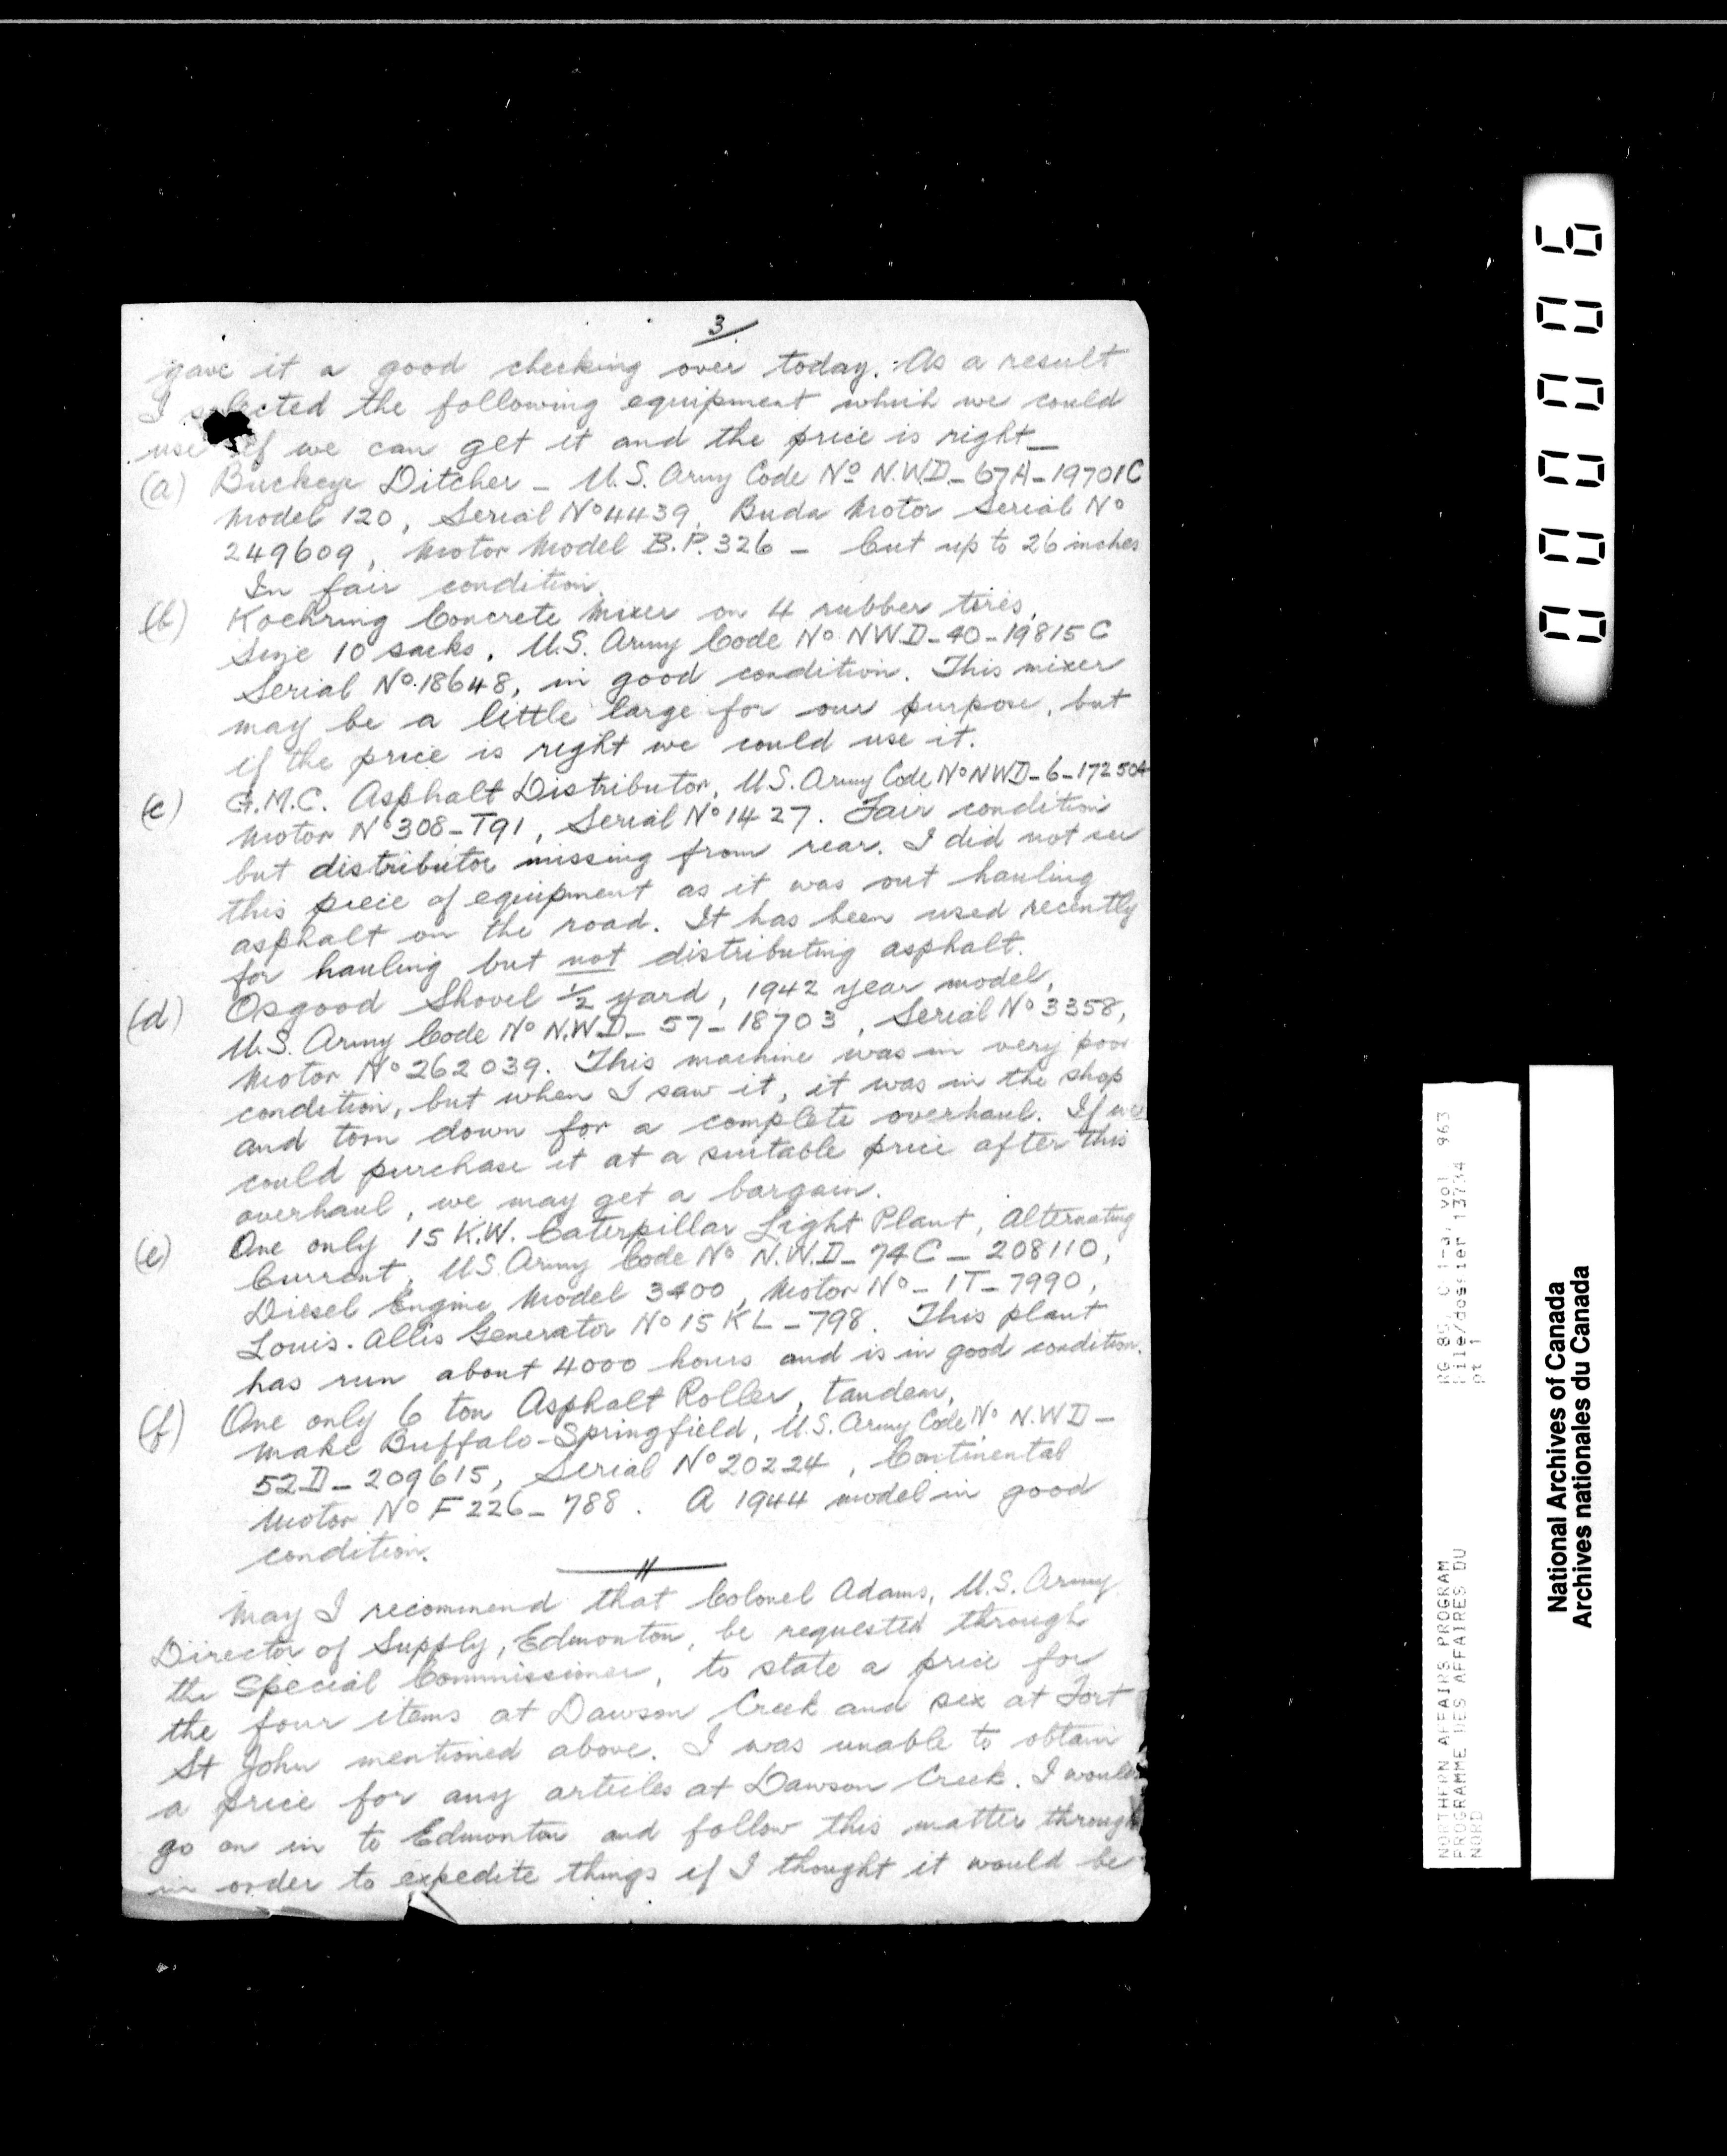 3/
gave it a good checking over today. As a result
I selected the following equipment which we could
use if we can get it and the price is right_
(a) Buckeye Ditcher - U.S. Army Code No N.W.D-67A-19701C
Model 120, Serial No 4439, Buda Motor Serial No
249609, Motor Model B.P. 326 - Cut up to 26 inches
In fair condition.
(b) Koehring Concrete Mixer on 4 rubber tires,
Size 10 sacks. U.S. Army Code No. NW.D-40-19815C
Serial No. 18648, in good condition. This mixer
may be a little large for our purpose, but
if the price is right we could use it.
(c) G.M.C. Asphalt Distributor, U.S. Army Code No NWD-6-172504
Motor No 308-T91, Serial No 1427. Fair condition
but distributor missing from rear. I did not see
this piece of equipment as it was out hauling
asphalt on the road. It has been used recently
for hauling but not distributing asphalt.
(d) Osgood Shovel 1/2 yard, 1942 year model,
U.S. Army Code No N.W.D-57-18703, Serial No 3358,
Motor No 262039. This machine was in very poor
condition, but when I saw it, it was in the shop
and torn down for a complete overhaul. If we
could purchase it at a suitable price after this
overhaul, we may get a bargain.
(e) One only 15 K.W. Caterpillar Light Plant, Alternating
Current, U.S. Army Code No N.W.D-74C-208110,
Diesel Engine Model 3400, Motor No-1T-7990,
Louis-Allis Generator No 15KL-798. This plant
has run about 4000 hours and is in good condition.
(f) One only 6 ton Asphalt Roller, tandem,
make Buffalo-Springfield, U.S. Army Code No N.WD-
52D-209615, Serial No 20224, Continental
Motor No F226-788. A 1944 model in good
condition.
May I recommend that Colonel Adams, U.S. Army
Director of Supply, Edmonton, be requested through
the Special Commissioner, to state a price for
the four items at Dawson Creek and six at Fort
St John mentioned above. I was unable to obtain
a price for any articles at Dawson Creek. I would
go on in to Edmonton and follow this matter through
in order to expedite things if I thought it would be
000006
RG 85, C 1-a, vol 963
File/dossier 13734
pt 1
NORTHERN AFFAIRS PROGRAM
PROGRAMME DES AFFAIRES DU
NORD
National Archives of Canada
Archives nationales du Canada